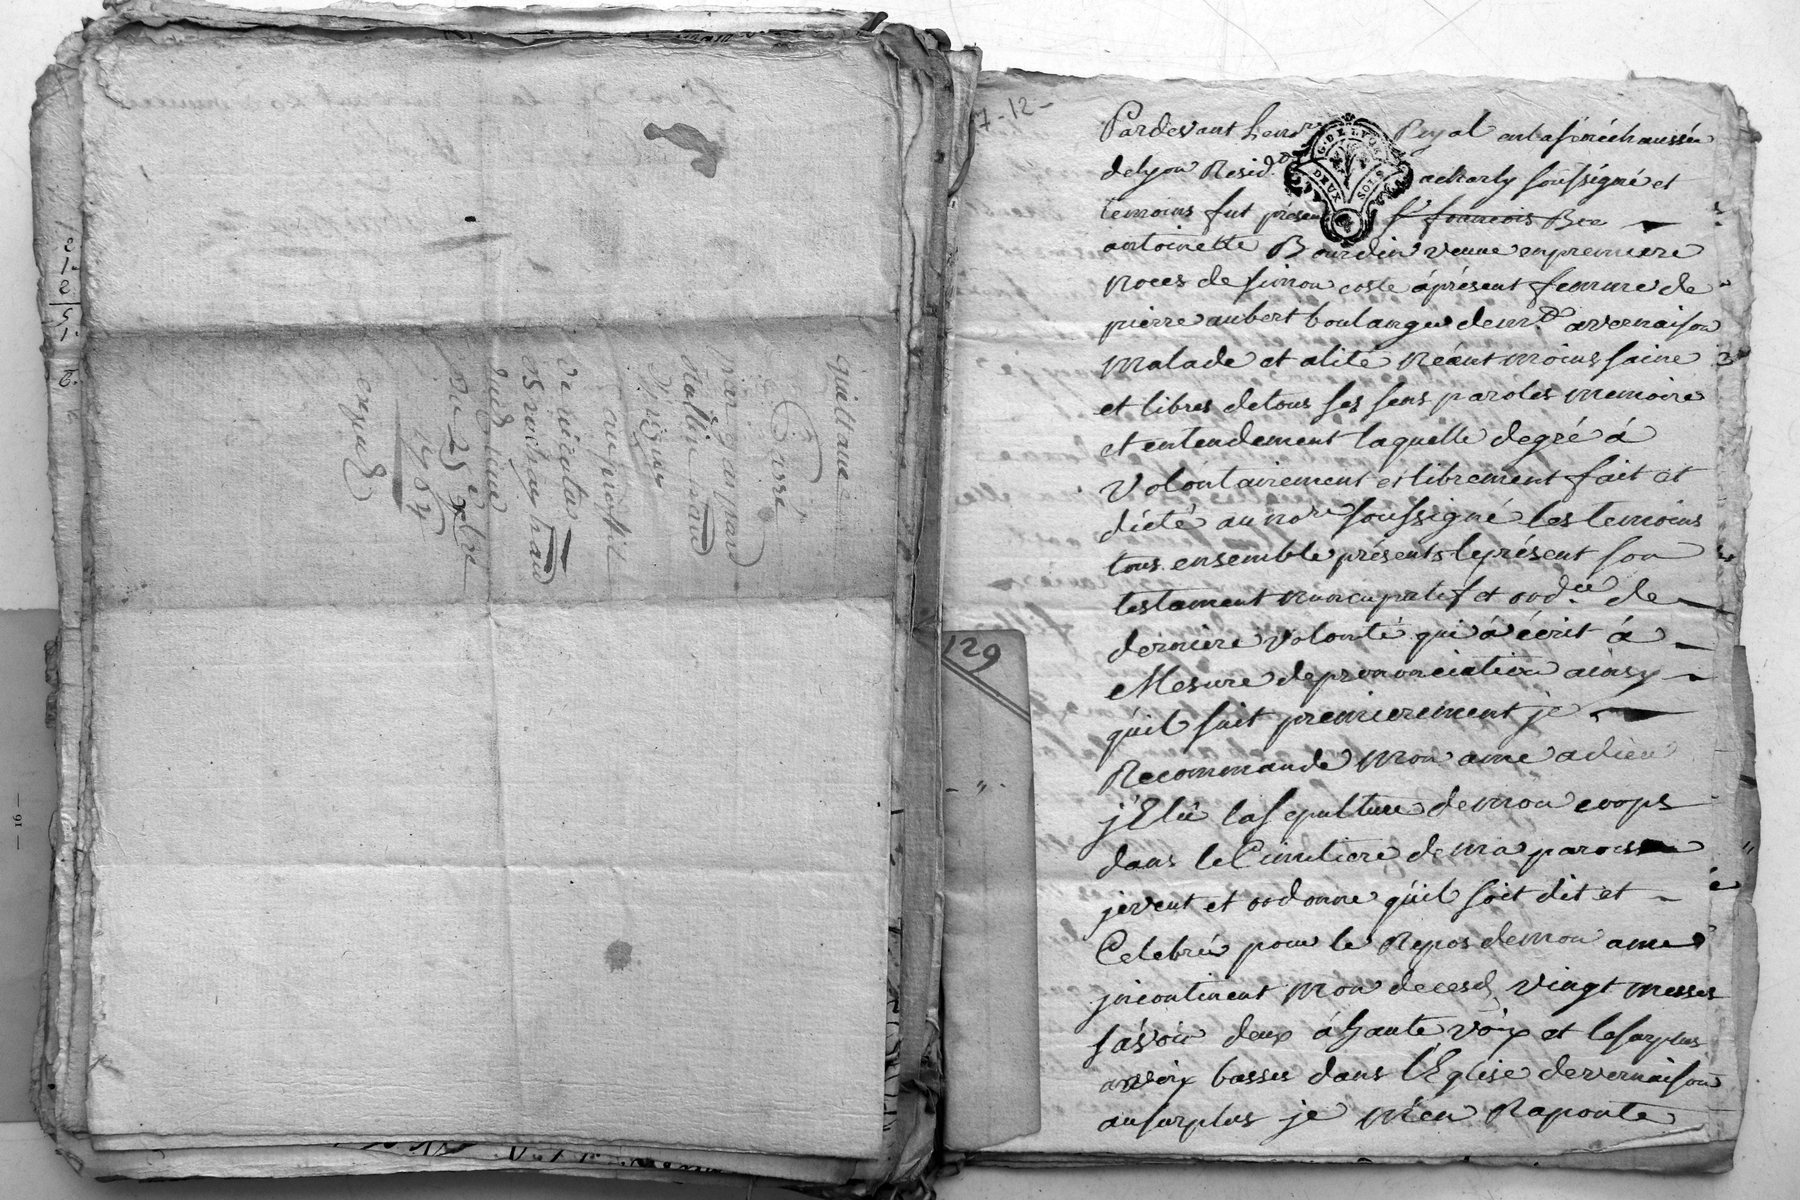 quittance
Passé
par
au proffit
expédié
du 25
1784
129
7-12-
— 16 —
G. DE LYON
DEUX SOLS
Pardevant le no.re Royal en la sénéchaussée
de lyon Resid.t a charly soussigné et
temoins fut présen s.r francois Bee
antoinette Bourdin veuve en premiere
noces de simon coste àprésent femme de
pierre aubert boulanger dem.t a vernaison
Malade et alité Néant moins saine
et libres de tous ses sens paroles memoire
et entendement laquelle de gré à
Volontairement et librement fait et
dicté au no.re soussigné les temoins
tous ensemble présents le présent son
testament nuncupatif et ord.ce de
derniere volonté qui à écrit à
Mesure de prononciation ainsy
qu'il suit premierement je
Recommande mon ame a dieu
j'Elis la sepulture de mon corps
dans le Cimetiere de ma paroisse
je veut et ordonne qu'il soit dit et
Celebrés pour le Repos de mon ame
jncontinent mon decesd vingt messes
sàvoir deux à haute voix et le surplus
a voix basses dans l'Eglise de vernaison
au surplus je m'en Raporte